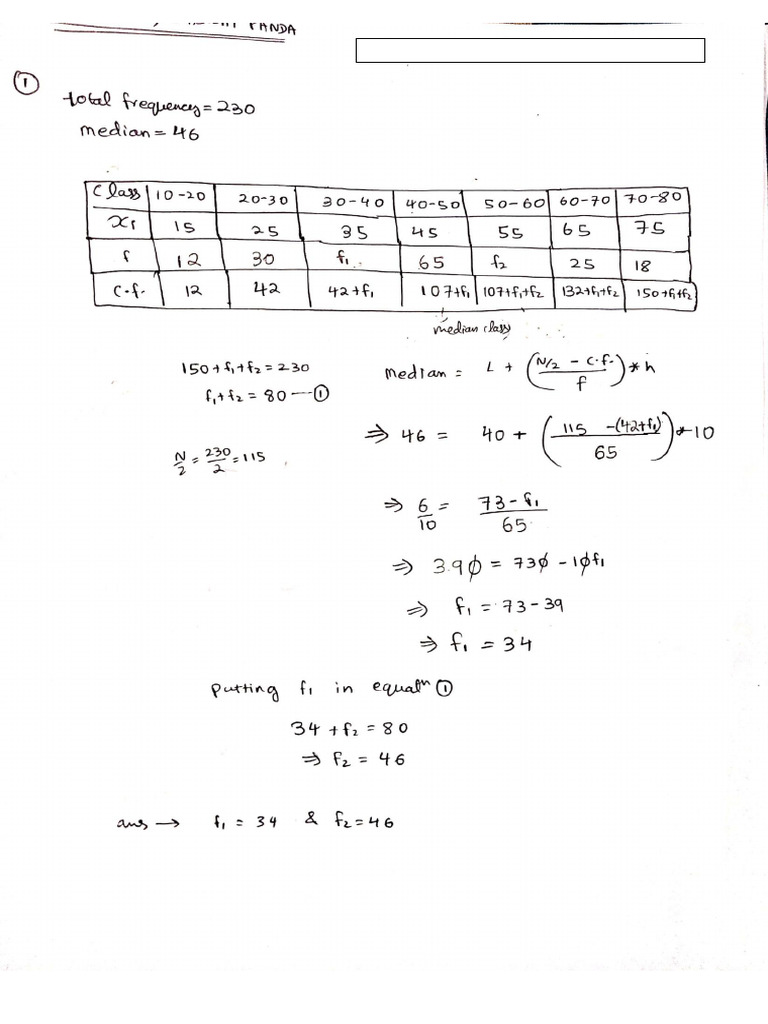 PANDA
①
total frequency = 230
median = 46
Class 10-20 20-30 30-40 40-50 50-60 60-70 70-80
xi 15 25 35 45 55 65 75
f 12 30 f₁ 65 f₂ 25 18
C.f. 12 42 42+f₁ 107+f₁ 107+f₁+f₂ 132+f₁+f₂ 150+f₁+f₂
median class
150+f₁+f₂=230
f₁+f₂ = 80 —①
N/2 = 230/2 = 115
median = L + (N/2 - C.f. / f) * h
⇒ 46 = 40 + (115 -(42+f₁) / 65) * 10
⇒ 6/10 = 73-f₁ / 65
⇒ 3.90 = 730 - 10f₁
⇒ f₁ = 73-39
⇒ f₁ = 34
putting f₁ in equatⁿ ①
34 + f₂ = 80
⇒ f₂ = 46
ans → f₁ = 34 & f₂ = 46